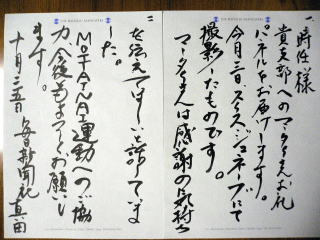 時任様
貴支部へのマータイさんお礼
パネルをお届けします。
今月三日、スイス・ジュネーブにて
撮影したものです。
マータイさんは感謝の気持ち
を伝えてほしいと話していま
した。
MOTTAINAI運動へのご協
力、今後もよろしくお願いし
ます。
十月二五日 毎日新聞社 真田